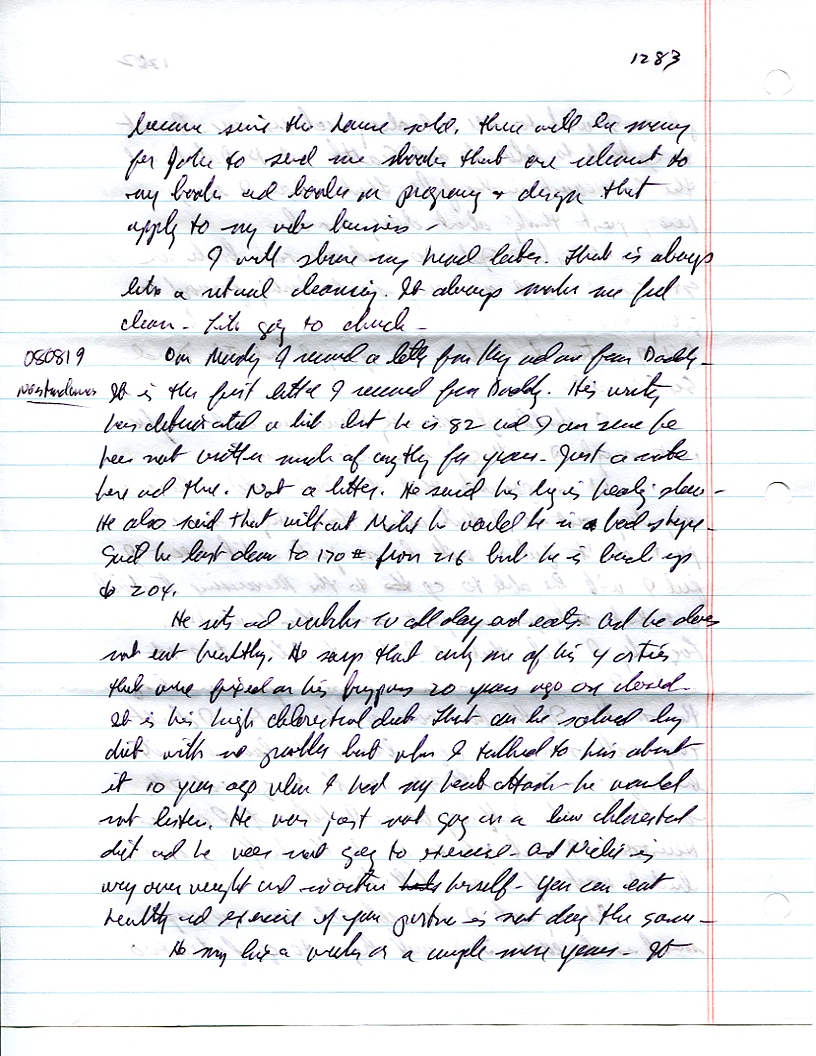 1283
because since the house sold, there will be money
for John to send me books that are relevant to
my books and books on programing & design that
apply to my web business -
I will shave my head later. That is always
like a ritual cleansing. It always makes me feel
clean - Like going to church -
080819 Our Monday I received a letter from and one from Daddy -
It is the first letter I received from Daddy. His writing
has deteriorated a bit but he is 82 and I am sure he
has not written much of anything for years - Just a note
here and there. Not a letter. He said his leg is healing slow -
He also said that without Nicki he would be in a bad shape -
Said he lost down to 170# from 216 but he is back up
to 204.
He sits and watches TV all day and eats. And he does
not eat healthy. He says that only one of his 4 arteries
that were fixed on his bypass 20 years ago are closed -
It is his high chlorestral diet that can be solved by
diet with no problem but when I talked to him about
it 10 years ago when I had my heart attack he would
not listen. He was just not going on a low chlorestral
diet and he was not going to exercise - And Nicki is
very over weight and inactive herself - You can eat
healthy and exercise if your partner is not doing the same -
He may live a week or a couple more years - It